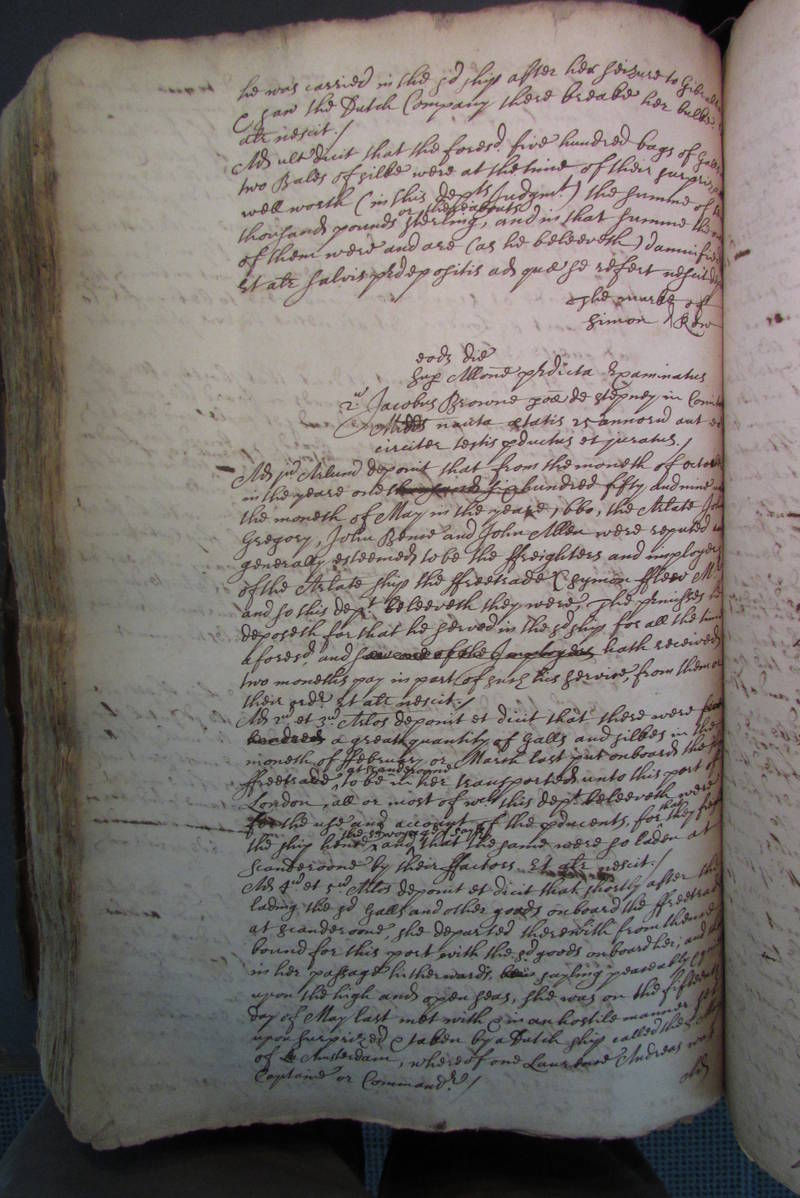 he was carried in the sd ship after her seizure to
& saw the Dutch Company there breake her bulke
alr nescit./
Ad ult dicit that the foresd. five hundred bags of Galls
two Bales of silke were at the time of their surprizall
well worth (in this depts Judgmt) the summe of
thousand pounds sterling, or thereabouts and in that summe the
of them were and are (as he beleeveth) damnified
Et alr salvis prdepositis ad quæ se refert nescit
The marke of
Simon Kew
eods die
Sup Allone prdicta Examinatus
2us Jacobus Browne poæ de Stepney in Comitatu
nauta ætatis 25 annoru aut eo
circiter testis productus et juratus./
Ad pm Arlum deponit that from the moneth of October
in the yeare one thousand six hundred fifty and nine
the moneth of May in the yeare 1660, the Arlate John
Gregory, John Bence and John Allen were reputed
generally esteemed to be the ffreighters and imployers
of the Arlate ship the ffreetrade (Symon fflew Mr)
and so this dept. beleeveth they were, The premisses he
deposeth for that he served in the sd ship for all the time
aforesd. and saw one of the Imployers hath received
two moneths pay in part of such his service, from them or
their ordr Et alr nescit./
Ad 2um et 3um Arlos deponit et dicit that there were
hundred a great quantity of Galls and silkes in the
moneth of ffebruary or March last put onboard the
ffreetrade, at Scanderoone to be in her transported unto this port of
London, all or most of wch this dept. beleeveth were
for the use and account of the producents, for that they
the ship home, the sd voyage and that the same were so laden at
Scanderoone by their ffactors. Et alr nescit./
Ad 4um et 5um Arlos deponit et dicit that shortly after the
lading the sd Galls and other goods onboard the ffreetrade
at Scanderoone, she departed therewith from thence
bound for this port with the sd goods onboard her, and
in her passage hitherwards, sayling peaceably
upon the high and open seas, she was on the fifteenth
day of May last met with & in an hostile manner set
upon surprized & taken by a Dutch ship called the
of Amsterdam, whereof one Laurence Andreas was
Captaine or Commandr./